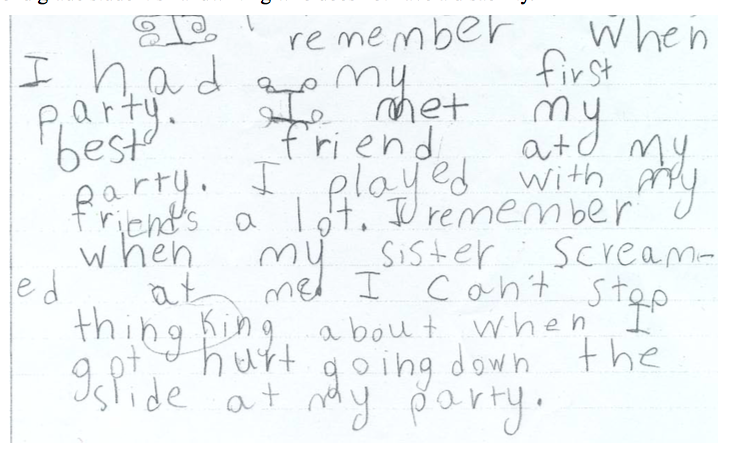 I remember when
I had my first
party. I met my
best friend atd my
party. I played with my
friends a lot. I remember
when my sister scream-
ed at me I can't stop
thingKing about when I
got hurt going down the
slide at my party.